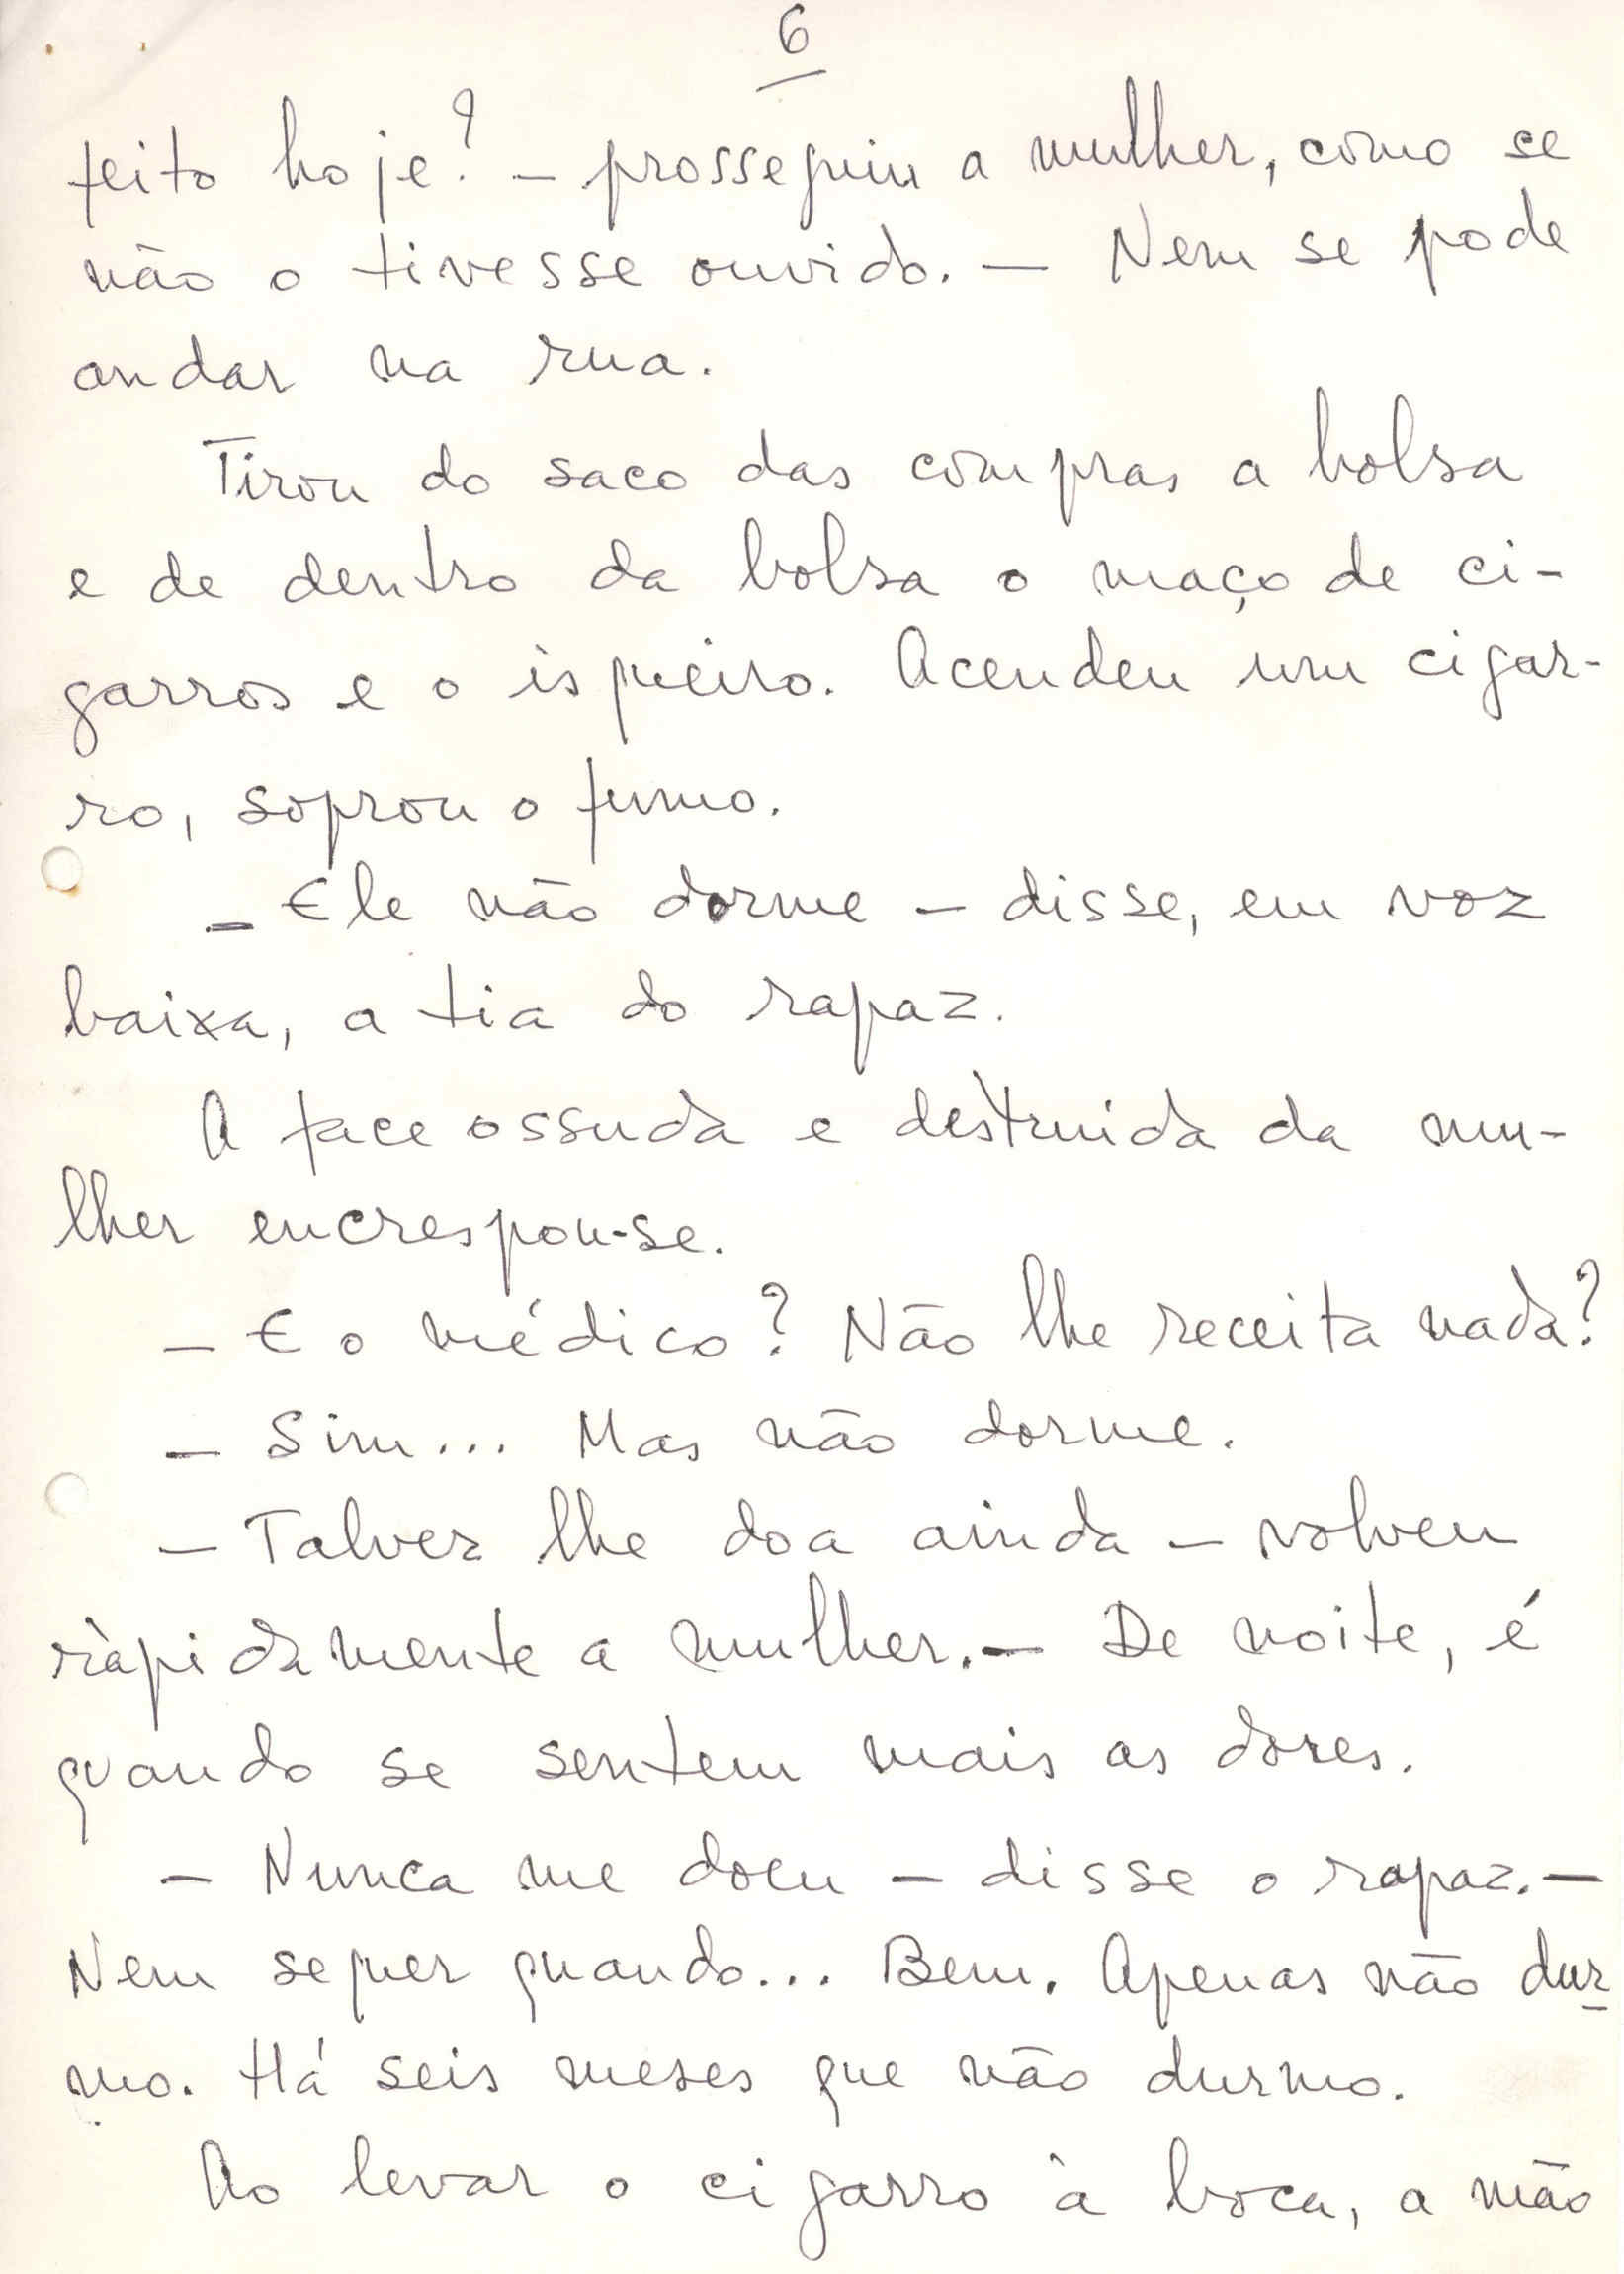 6
feito hoje? — prosseguiu a mulher, como se
não o tivesse ouvido. — Nem se pode
andar na rua.
Tirou do saco das compras a bolsa
e de dentro da bolsa o maço de ci-
garros e o isqueiro. Acendeu um cigar-
ro, soprou o fumo.
— Ele não dorme — disse, em voz
baixa, a tia do rapaz.
A face ossuda e destruida da mu-
lher encrespou-se.
— E o médico? Não lhe receita nada?
— Sim... Mas não dorme.
— Talvez lhe doa ainda — volveu
ràpidamente a mulher. — De noite, é
quando se sentem mais as dores.
— Nunca me doeu — disse o rapaz. —
Nem sequer quando... Bem. Apenas não dur-
mo. Há seis meses que não durmo.
Ao levar o cigarro à boca, a mão